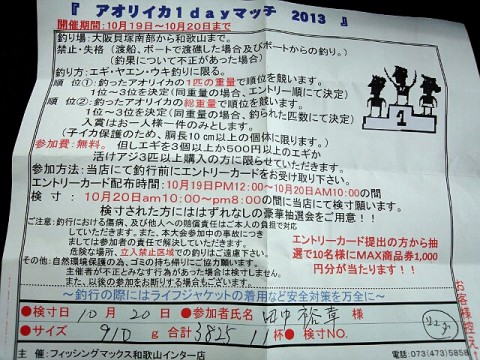 『 アオリイカ1dayマッチ 2013 』
開催期間:10月19日~10月20日まで
釣り場:大阪貝塚南部から和歌山まで。
禁止・失格(渡船、ボートで渡礁した場合及びボートからの釣り。)
(釣果について不正があった場合)
釣り方:エギ・ヤエン・ウキ釣りに限る。
順位①:釣ったアオリイカの1匹の重量で順位を競います。
1位~3位を決定(同重量の場合、エントリー順にて決定)
順位②:釣ったアオリイカの総重量で順位を競います。
1位~3位を決定(同重量の場合、釣られた匹数にて決定)
入賞はお一人様一件のみとします。
(子イカ保護のため、胴長10cm以上の個体に限ります。)
参加費:無料。 但しエギを3個以上か500円以上のエギか
活けアジ3匹以上購入の方に限らせていただきます。
参加方法:当店にて釣行前にエントリーカードをお受け取り下さい。
エントリーカード配布時間:10月19日PM12:00~10月20日AM10:00の間
検 寸 : 10月20日am10:00~pm8:00の間に当店にて検寸願います。
検寸された方にははずれなしの豪華抽選会をご用意!!
ご注意:釣行における傷病、及び他人への賠償責任はご本人の負担で対応
していただきます。また、本大会参加中の事故につき
ましては参加者の責任で解決していただきます。
危険な場所、立入禁止区域での釣りはご遠慮下さい。
その他:自然環境保護の為、ゴミの持ち帰りにご協力願います。
主催者が不正とみなす行為があった場合は検寸しません。
また、以降の参加をお断りする場合もございます。
エントリーカード提出の方から抽
選で10名様にMAX商品券1,000
円分が当たります!!
~釣行の際にはライフジャケットの着用など安全対策を万全に~
お客様控え
●検寸日 10月 20日 ●参加者氏名 田中 裕章 様
●サイズ 910g 合計3825 11杯 ●検寸NO.
主催:フィッシングマックス和歌山インター店
電話:073(473)5858
1